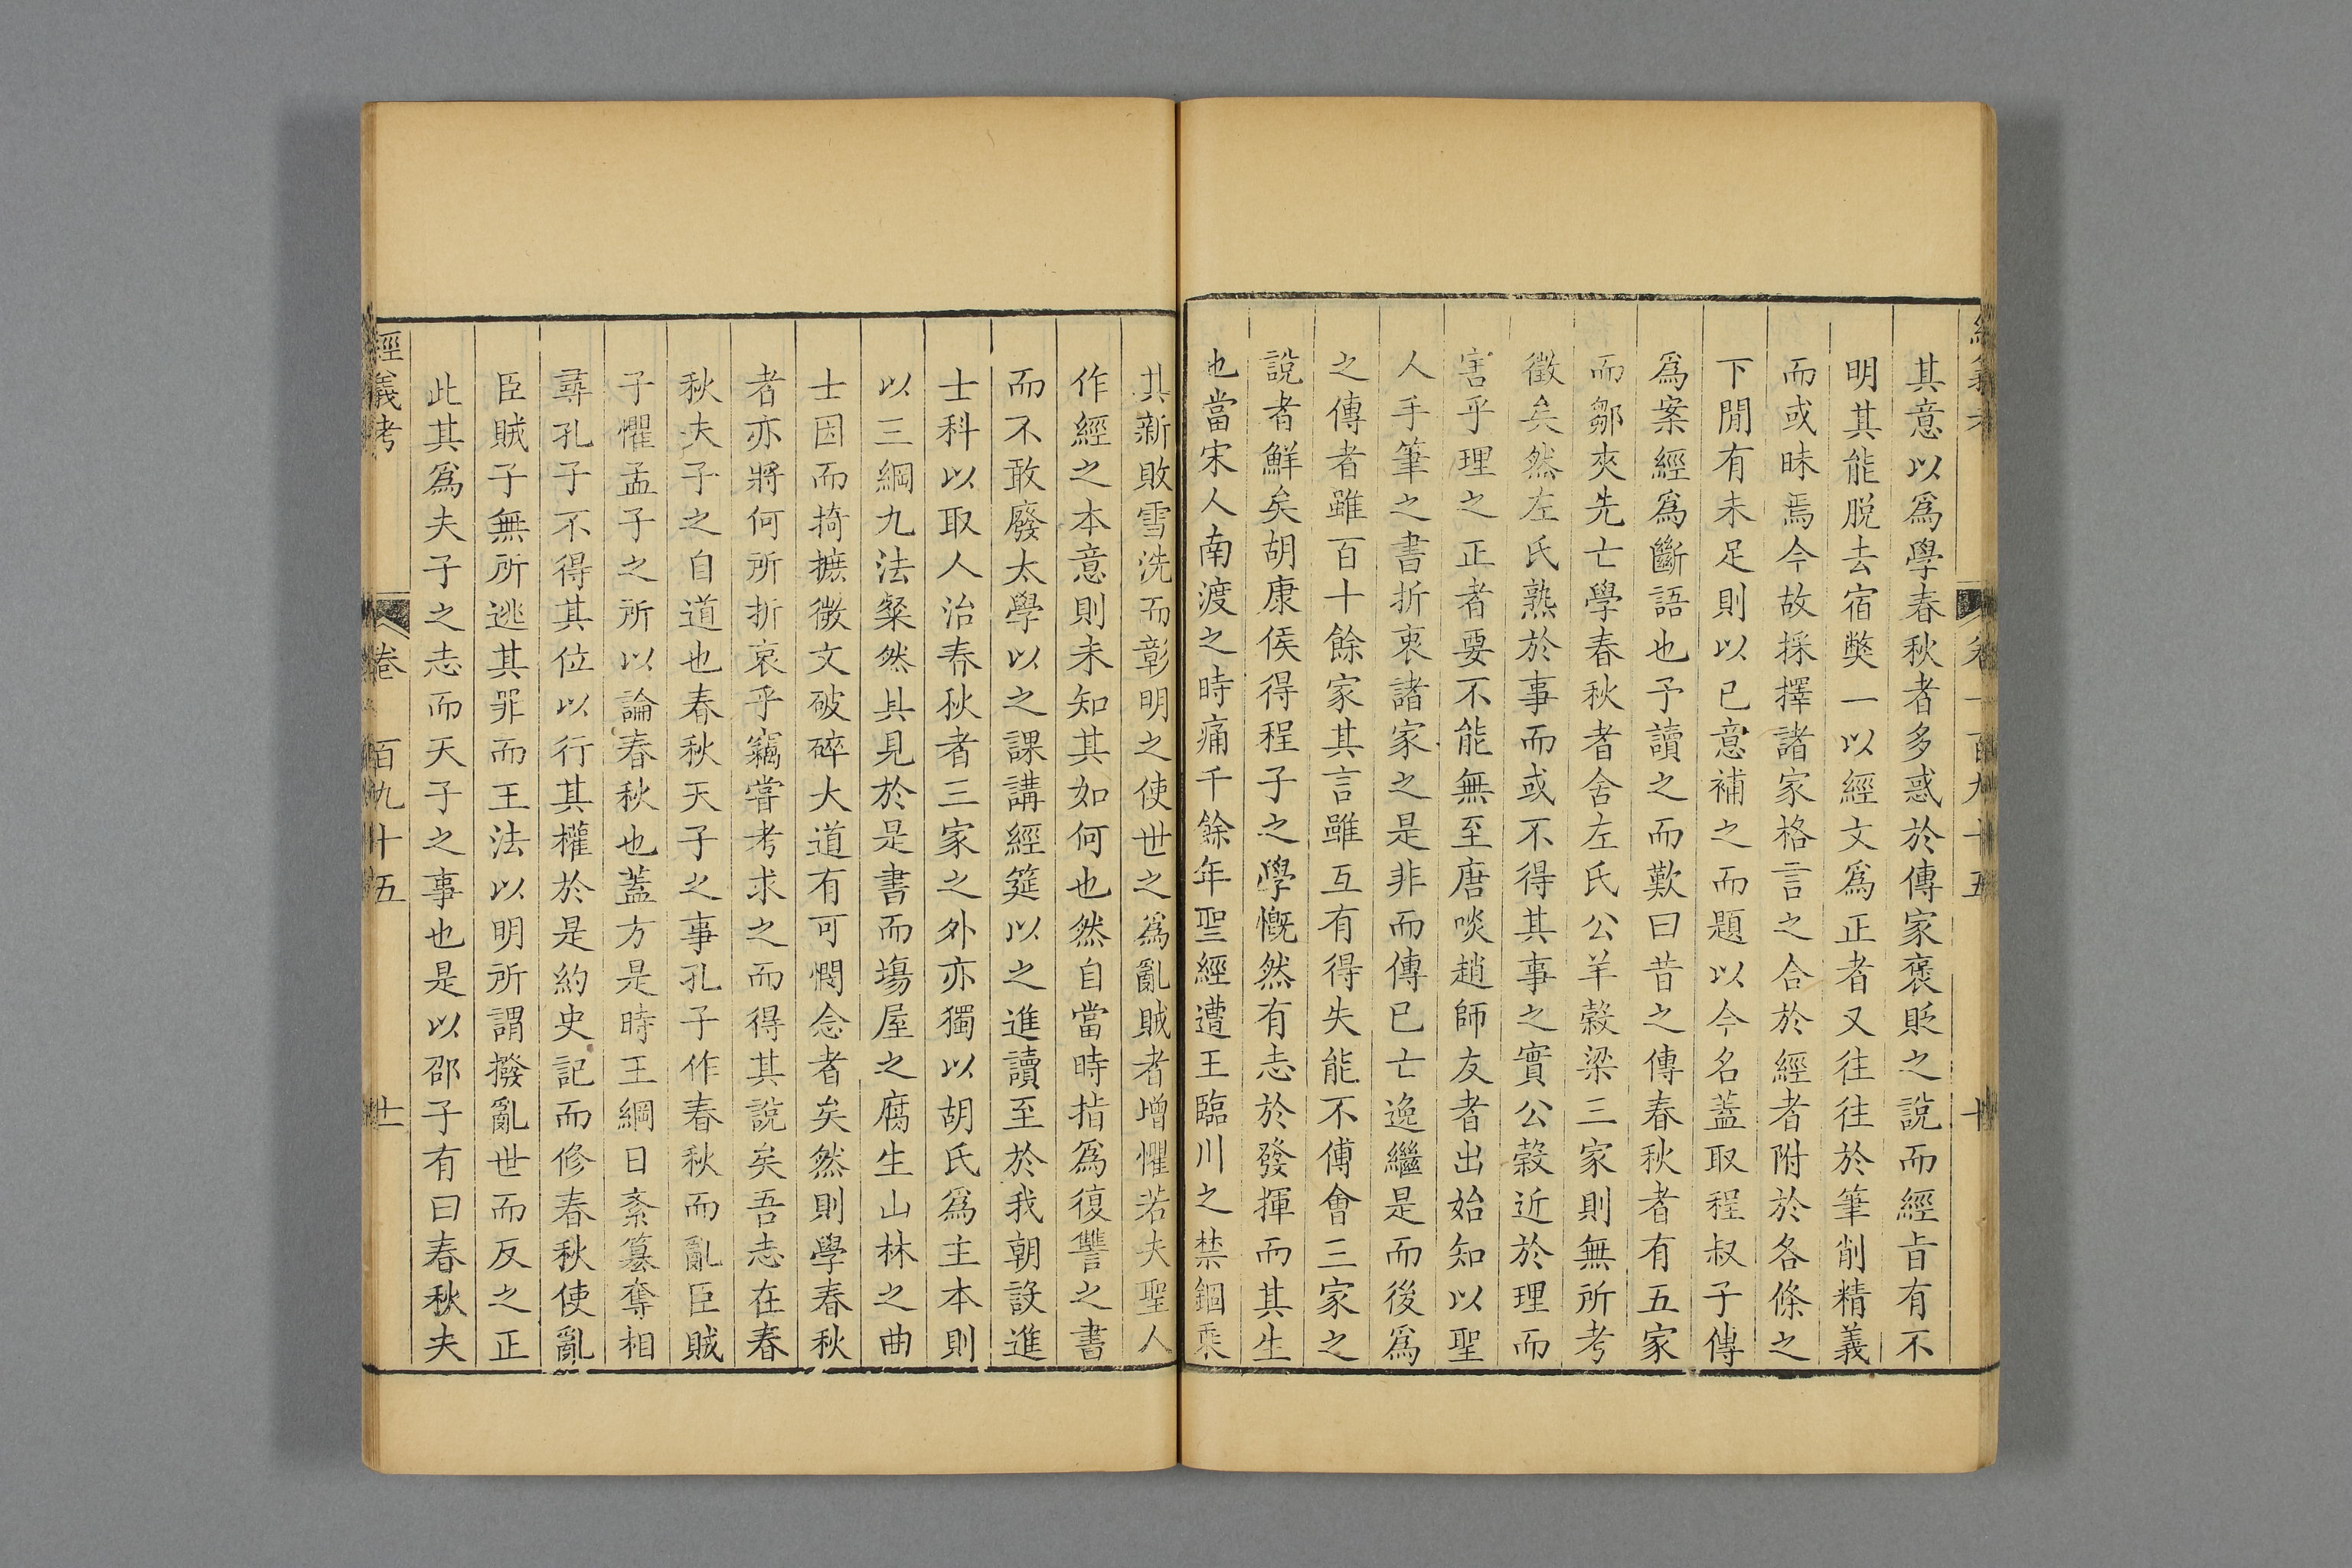 其意以爲學春秋者多惑於傳家褒貶之說而經旨有不
明其能脱去宿獘一以經文爲正者又往往於筆削精義
而或昧焉今故採擇諸家格言之合於經者附於各條之
下閒有未足則以已意補之而題以今名蓋取程叔子傳
爲案經爲斷語也予讀之而歎曰昔之傳春秋者有五家
而鄒夾先亡學春秋者舍左氏公羊穀梁三家則無所考
徵矣然左氏熟於事而或不得其事之實公穀近於理而
害乎理之正者要不能無至唐啖趙師友者出始知以聖
人手筆之書折衷諸家之是非而傳已亡逸繼是而後爲
之傳者雖百十餘家其言雖互有得失能不傅會三家之
說者鮮矣胡康侯得程子之學慨然有志於發揮而其生
也當宋人南渡之時痛千餘年聖經遭王臨川之禁錮乘
其新敗雪洗而彰明之使世之爲亂賊者增懼若夫聖人
作經之本意則未知其如何也然自當時指爲復讐之書
而不敢廢太學以之課講經筵以之進讀至於我朝設進
士科以取人治春秋者三家之外亦獨以胡氏爲主本則
以三綱九法粲然具見於是書而塲屋之腐生山林之曲
士因而掎摭微文破碎大道有可憫念者矣然則學春秋
者亦將何所折衷乎竊嘗考求之而得其說矣吾志在春
秋夫子之自道也春秋天子之事孔子作春秋而亂臣賊
子懼孟子之所以論春秋也蓋方是時王綱日紊簒奪相
尋孔子不得其位以行其權於是約史記而修春秋使亂
臣賊子無所逃其罪而王法以明所謂撥亂世而反之正
此其爲夫子之志而天子之事也是以邵子有曰春秋夫
經義考 卷一百九十五 十一